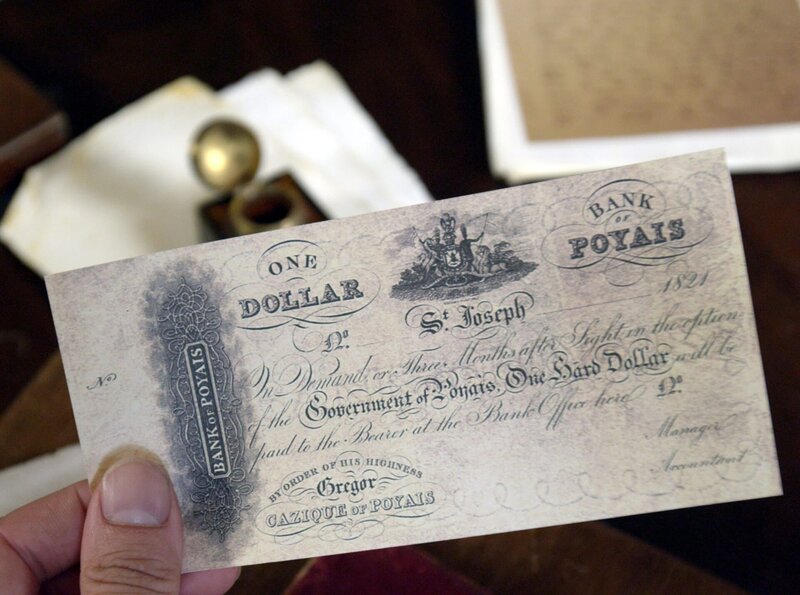 BANK
OF
POYAIS
ONE
DOLLAR
1821
St. Joseph
No.
On Demand, or Three Months after Sight in the option
of the Government of Poyais, One Hard Dollar will be
paid to the Bearer at the Bank Office here No.
No
BANK OF POYAIS
Manager
Accountant
BY ORDER OF HIS HIGHNESS
Gregor
CAZIQUE OF POYAIS